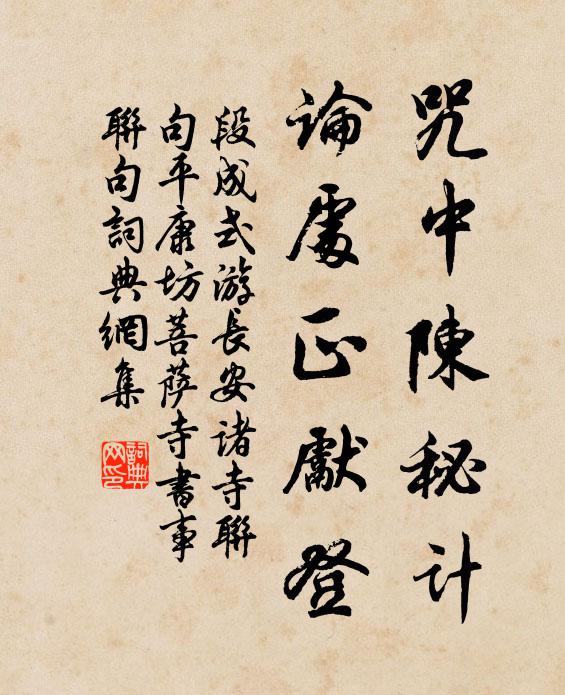 咒中陳秘計
論處正獻登
段成式游長安諸寺聯
句平康坊菩薩寺書事
聯句詞典網集
詞典
网印